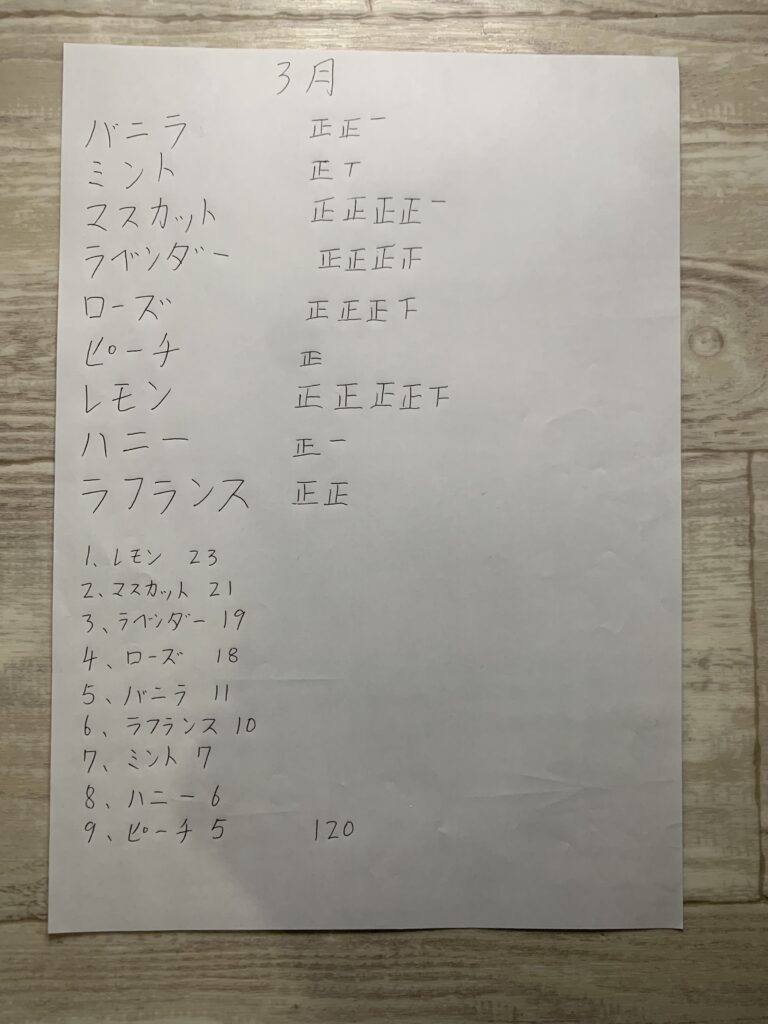 3月
バニラ 正正一
ミント 正丅
マスカット 正正正正一
ラベンダー 正正正𠄟
ローズ 正正正下
ピーチ 正
レモン 正正正正下
ハニー 正一
ラフランス 正正
1、レモン 23
2、マスカット 21
3、ラベンダー 19
4、ローズ 18
5、バニラ 11
6、ラフランス 10
7、ミント 7
8、ハニー 6
9、ピーチ 5 120